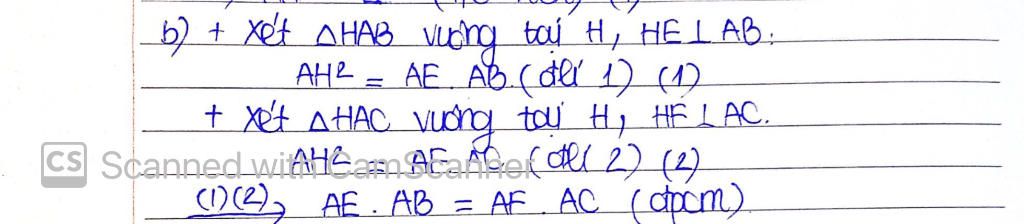 b) + Xét △HAB vuông tại H, HE⊥AB:
AH² = AE. AB. (đlí 1) (1)
+ Xét △HAC vuông tại H, HF⊥AC.
AH² = AF. AC. (đlí 2) (2)
CS Scanned with CamScanner
(1)(2)⇒ AE. AB = AF. AC (đpcm)